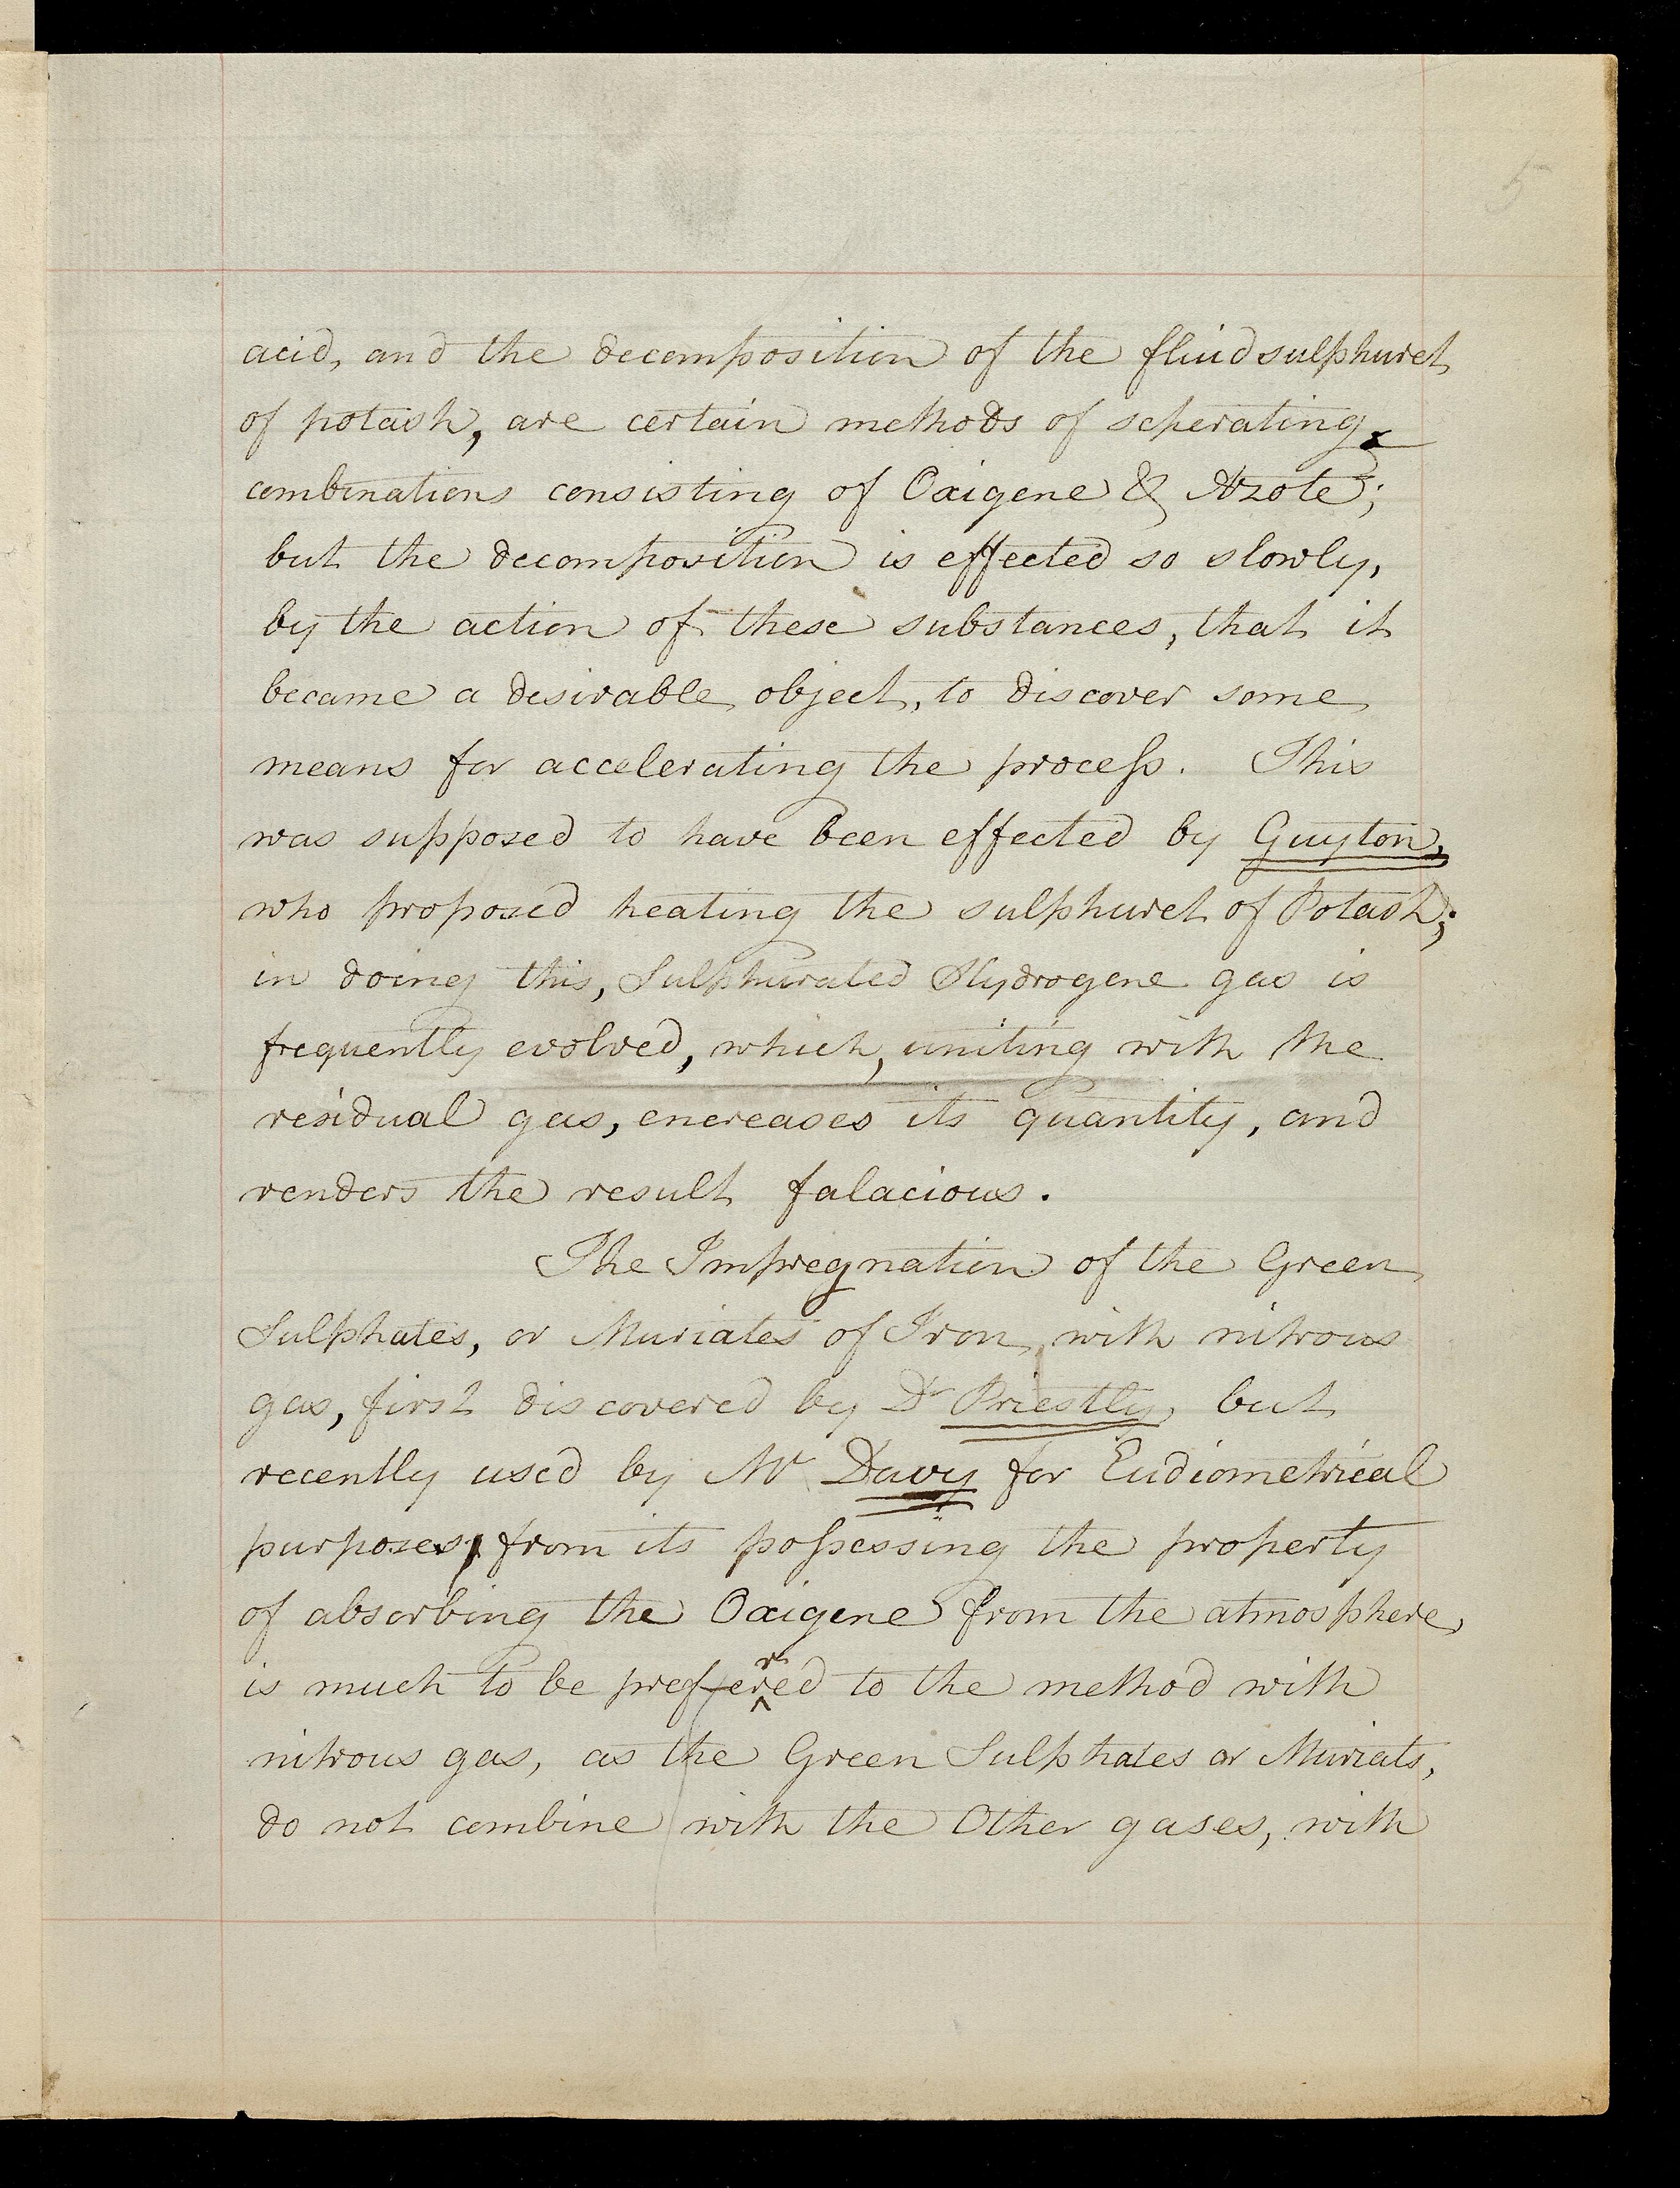 5
acid, and the decomposition of the fluid sulphuret
of potash, are certain methods of seperating
combinations consisting of Oxigene & Azote;
but the decomposition is effected so slowly,
by the action of these substances, that it
became a desirable object, to discover some
means for accelerating the process. This
was supposed to have been effected by Guyton,
who proposed heating the sulphuret of Potash;
in doing this, Sulphurated Hydrogene gas is
frequently evolved, which, uniting with the
residual gas, encreases its quantity, and
renders the result falacious.
The Impregnation of the Green
Sulphates, or Muriates of Iron, with nitrous
gas, first discovered by Dr Priestly, but
recently used by Mr Davy for Eudiometrical
purposes, from its possessing the property
of absorbing the Oxigene from the atmosphere,
is much to be preferred to the method with
nitrous gas, as the Green Sulphates or Muriats,
do not combine with the Other gases, with